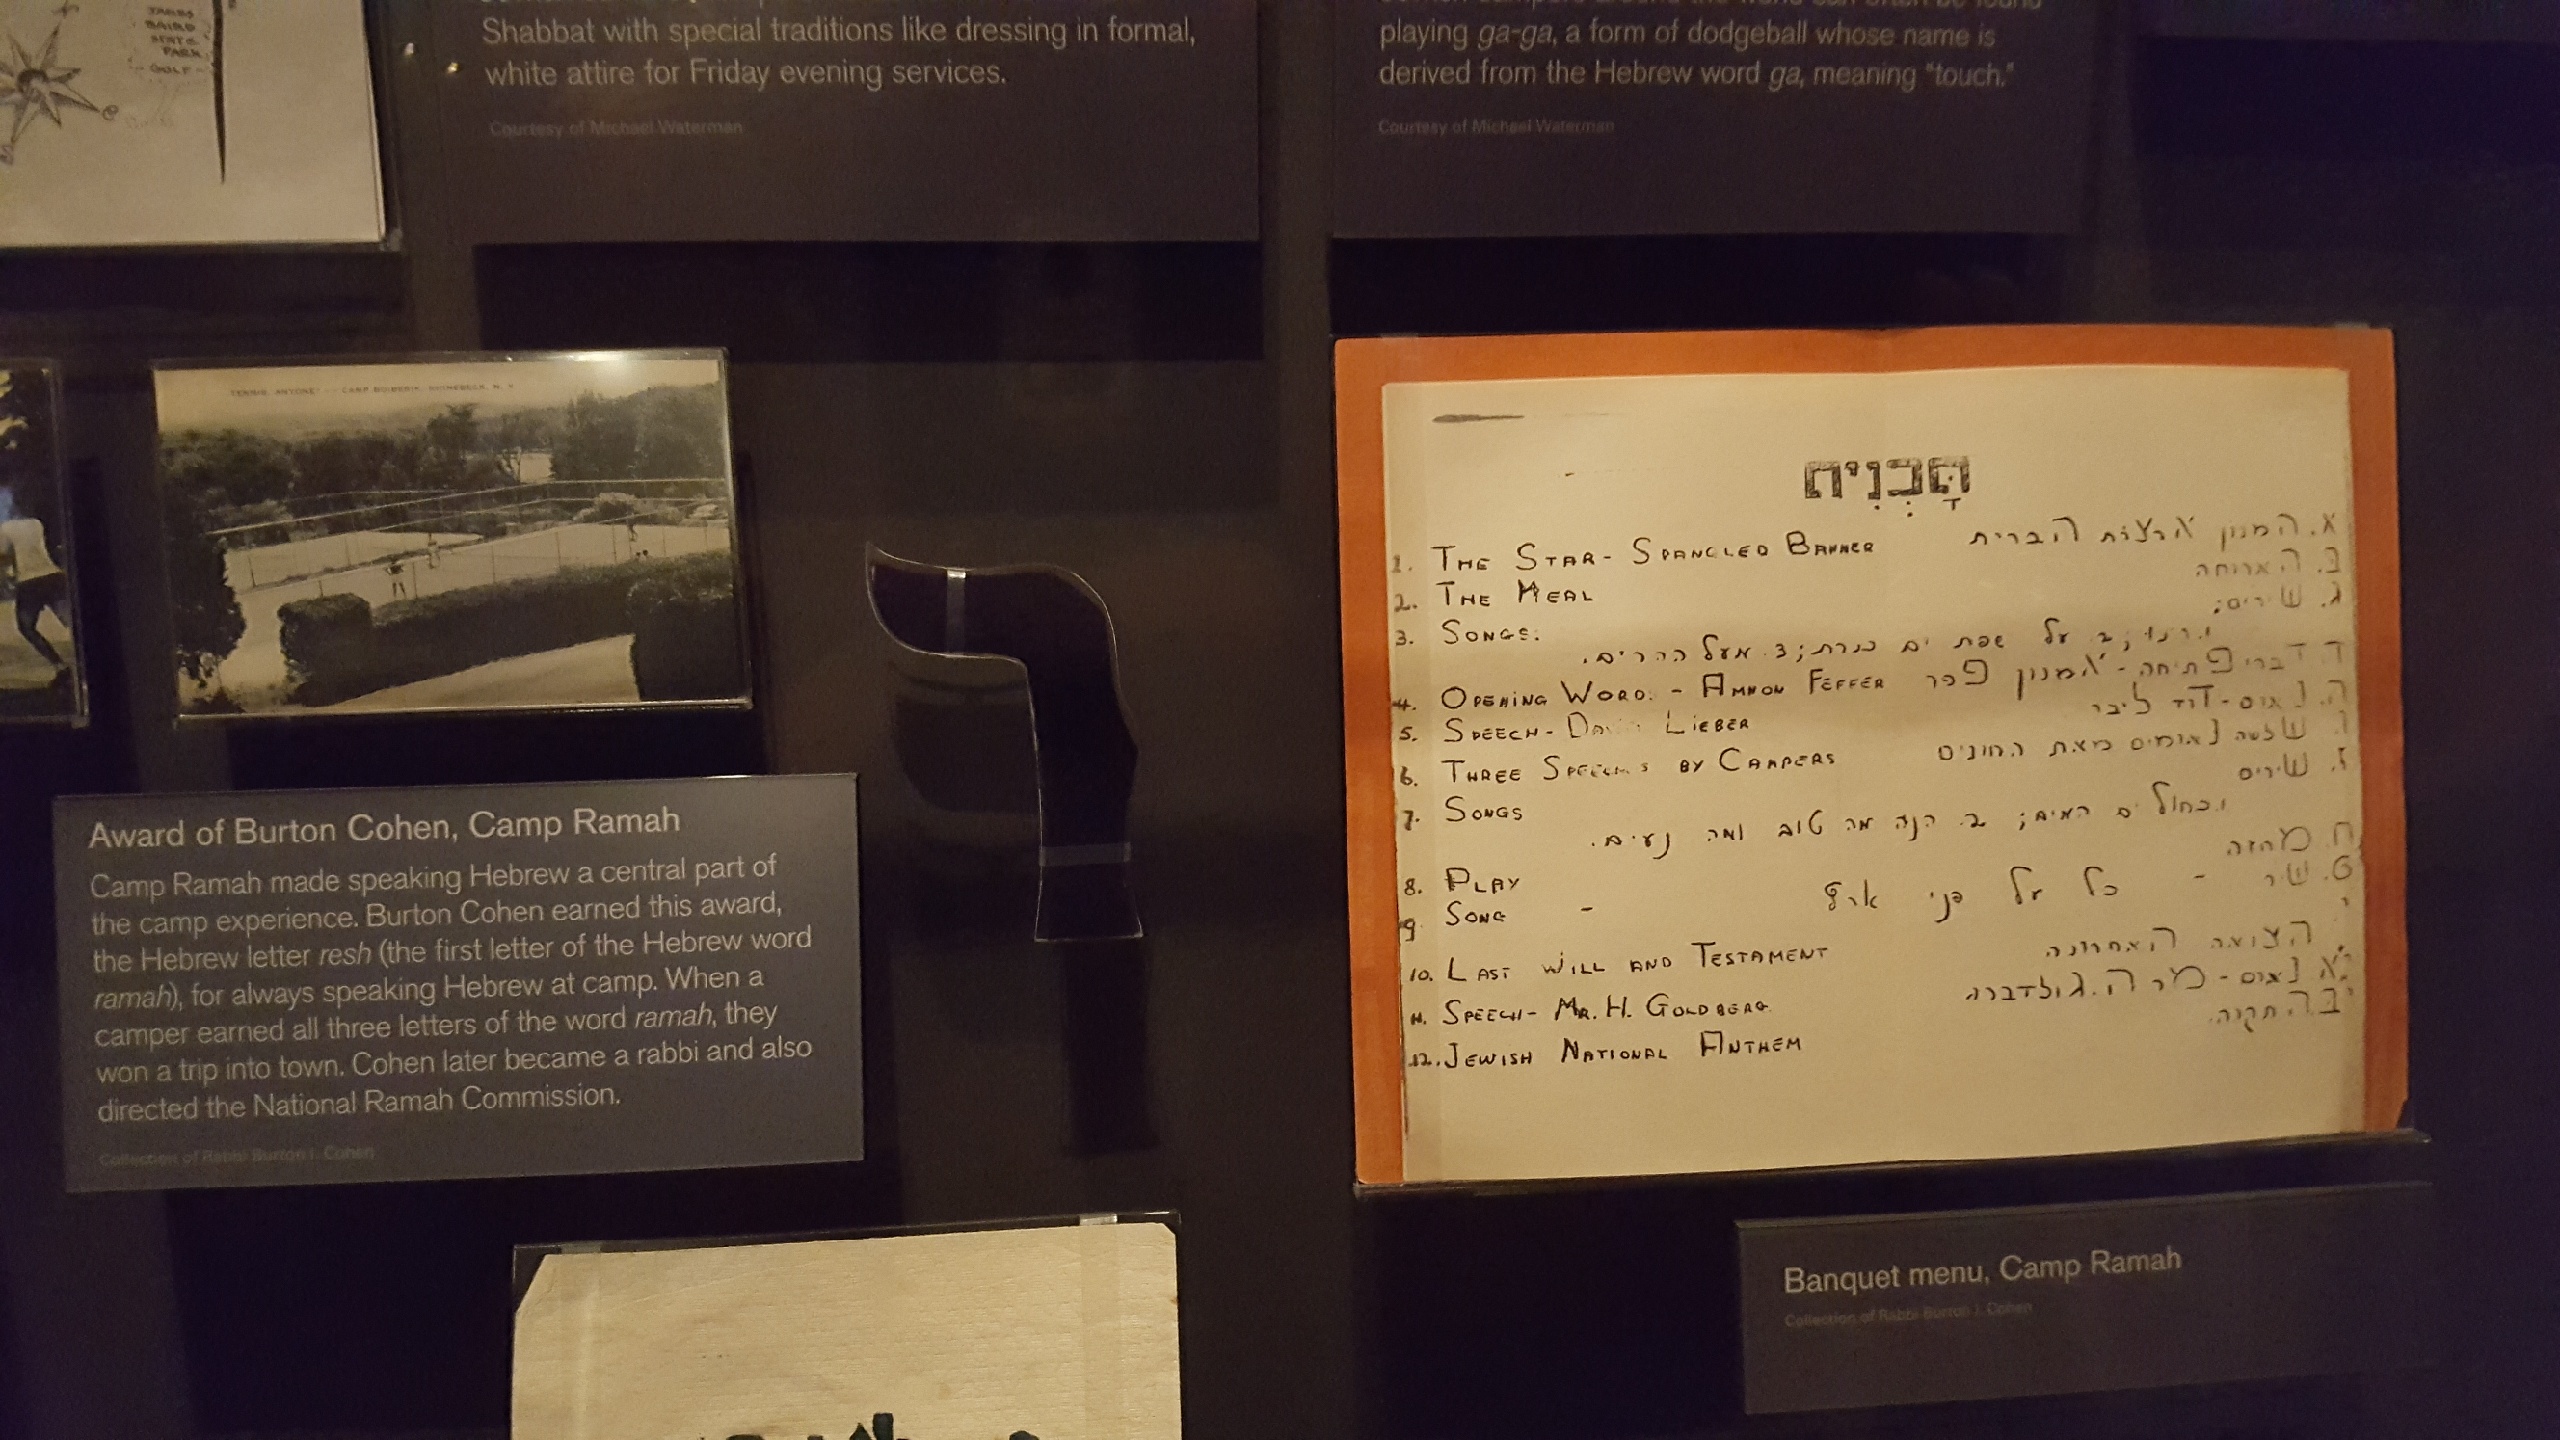 JAMES
BAIRD
STATE
PARK
GOLF
Shabbat with special traditions like dressing in formal,
white attire for Friday evening services.
Courtesy of Michael Waterman
playing ga-ga, a form of dodgeball whose name is
derived from the Hebrew word ga, meaning “touch.”
Courtesy of Michael Waterman
TENNIS, ANYONE? — CAMP BOIBERIK, RHINEBECK, N. Y.
Award of Burton Cohen, Camp Ramah
Camp Ramah made speaking Hebrew a central part of
the camp experience. Burton Cohen earned this award,
the Hebrew letter resh (the first letter of the Hebrew word
ramah), for always speaking Hebrew at camp. When a
camper earned all three letters of the word ramah, they
won a trip into town. Cohen later became a rabbi and also
directed the National Ramah Commission.
Collection of Rabbi Burton I. Cohen
1. THE STAR-SPANGLED BANNER א. המנון ארצות הברית
2. THE MEAL ב. הארוחה
3. SONGS: ג. שירים;
על שפת ים כנרת; 3. מעל ההרים.
4. OPENING WORD. - AMNON FEFFER ד. דברי פתיחה - אמנון פפר
5. SPEECH - DAVID LIEBER ה. נאום - דוד ליבר
6. THREE SPEECHES BY CAMPERS ו. שלשה נאומים מאת החונים
7. SONGS ז. שירים
1. כחול ים המים; 2. הנה מה טוב ומה נעים.
8. PLAY ח. מחזה
9. SONG - ט. שיר - כל על פני ארץ
10. LAST WILL AND TESTAMENT י. הצואה האחרונה
11. SPEECH - MR. H. GOLDBERG יא. נאום - מר ה. גולדברג
12. JEWISH NATIONAL ANTHEM יב. התקוה.
Banquet menu, Camp Ramah
Collection of Rabbi Burton I. Cohen